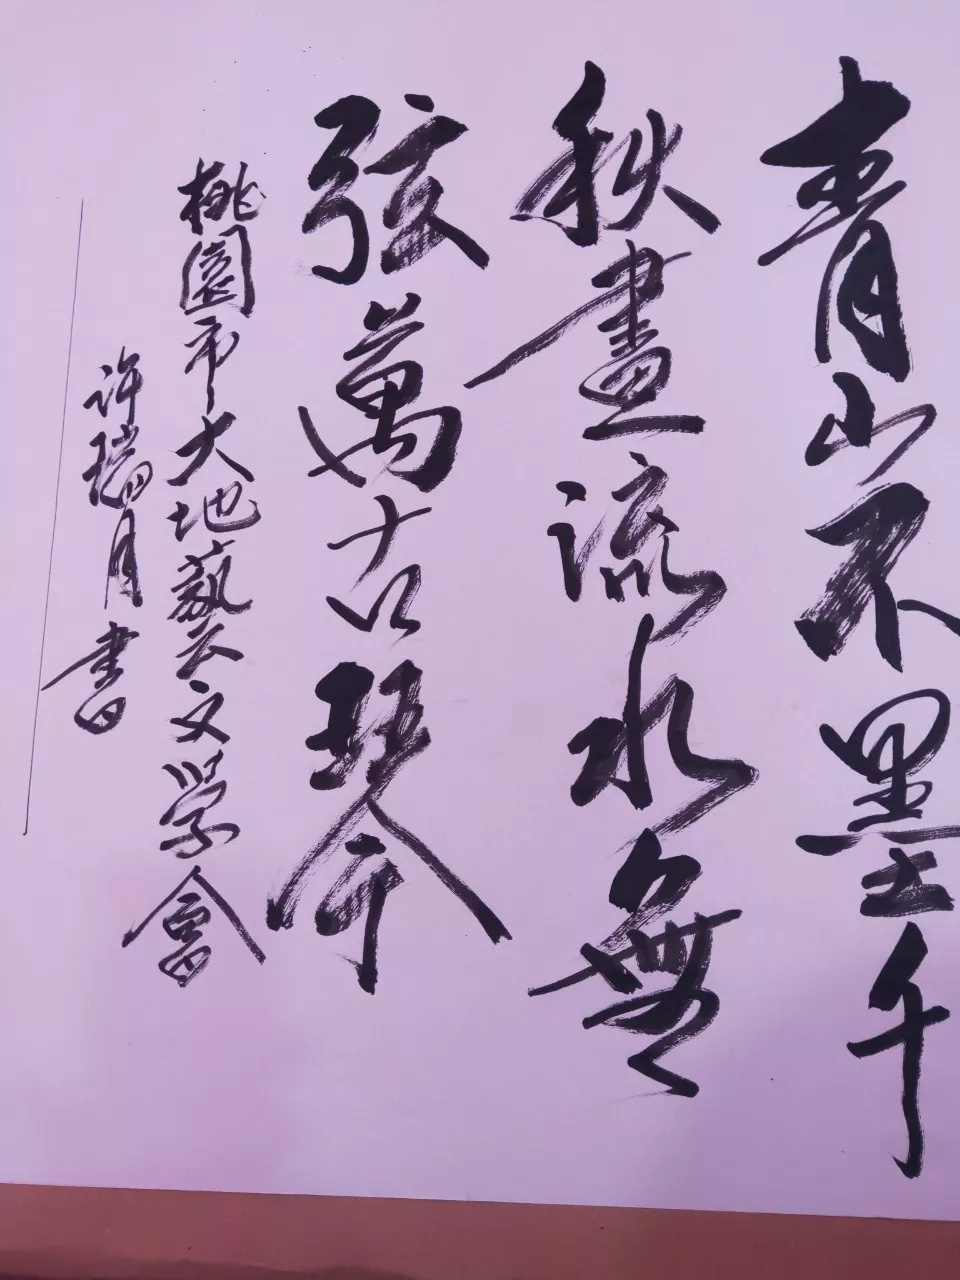 青山不墨千
秋畫流水無
弦萬古琴
桃園市大地藝文學會
許瑞月書